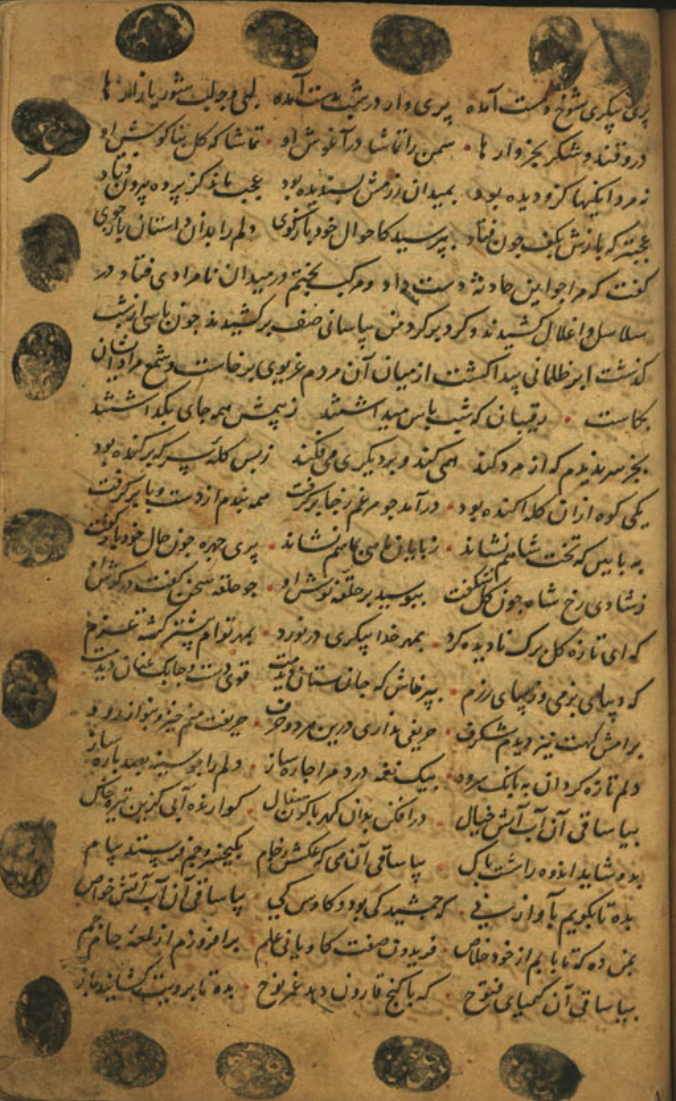 پری پیکری شوخ و مست آمده پری وار در شب بدست آمده لبی و چه لب شور بازارها
درو قند و شکر بخروارها سمن را تماشا در آغوش او تماشا که گل بناگوش او
نه مرد اینهمه کز و دیده بود بمیدان رزمش پسندیده بود عجب ماند کز پرده بیرون فتاد
که بازش بکف چون فتاد بپرسید کاحوال خود بازگوی دلم را بدان داستان بازجوی
گفت که مرا چو این حادثه دست داد و مرکب بختم در میدان نامرادی فتاد در
سلاسل و اغلال کشیدند و گرد بر گرد من پاسبانی صف برکشیدند چون پاسی از شب
گذشت ابر ظلمانی پیدا گشت از میان آن مردم غریوی برخاست و شمع مراد ایشان
بکاست رقیبان که شب پاس میداشتند ز بیمش همه جای بگذاشتند
بجز سر ندیدم که از مرد کند همی کند و بر دیگری می فکند ز بس کله سر که برکنده بود
یکی کوه از ان کله آکنده بود در آمد چو مرغم ز جا برگرفت همه بندم از دست و پا برگرفت
به پایین که تخت شاهم نشاند ز پایان ماهی بماهم نشاند پری چهره چون حال خود باز گفت
ز شادی رخ شاه چون گل شکفت ببوسید بر حلقه نوش او چو حلقه سخن گفت در گوش او
که ای تازه گل برگ نادیده گرد بمهر خدا پیکری در نورد بمهر توام بیشتر گشت عزم
که دیبای بزمی و زیبای رزم بپرخاش که جان ستان دیدمت قوی دست و چابک عنان دیدمت
برامش گهت نیز دیدم شگرف حریفی نداری درین هر دو حرف حریفت منم خیز و بنواز رود
دلم تازه گردان به بانگ سرود بیک نغمه درد مرا چاره ساز دلم را
بیا ساقی آن آب آتش خیال در افکن بدان کهربا گون سفال گوارنده آبی کزین تیره خاک
بدو شاید اندوه را شست پاک بیا ساقی آن می که عکسش ز جام بکیخسرو و جم فرستد پیام
بده تا بگویم بآواز نی که جمشید کی بود و کاوس کی بیا ساقی آن آب آتش خواص
بمن ده که تا یابم از خود خلاص فریدون صفت کاویانی علم برافرازم از جام جم
بیا ساقی آن کیمیای فتوح که با گنج قارون دهد عمر نوح بده تا برویت گشایند باز